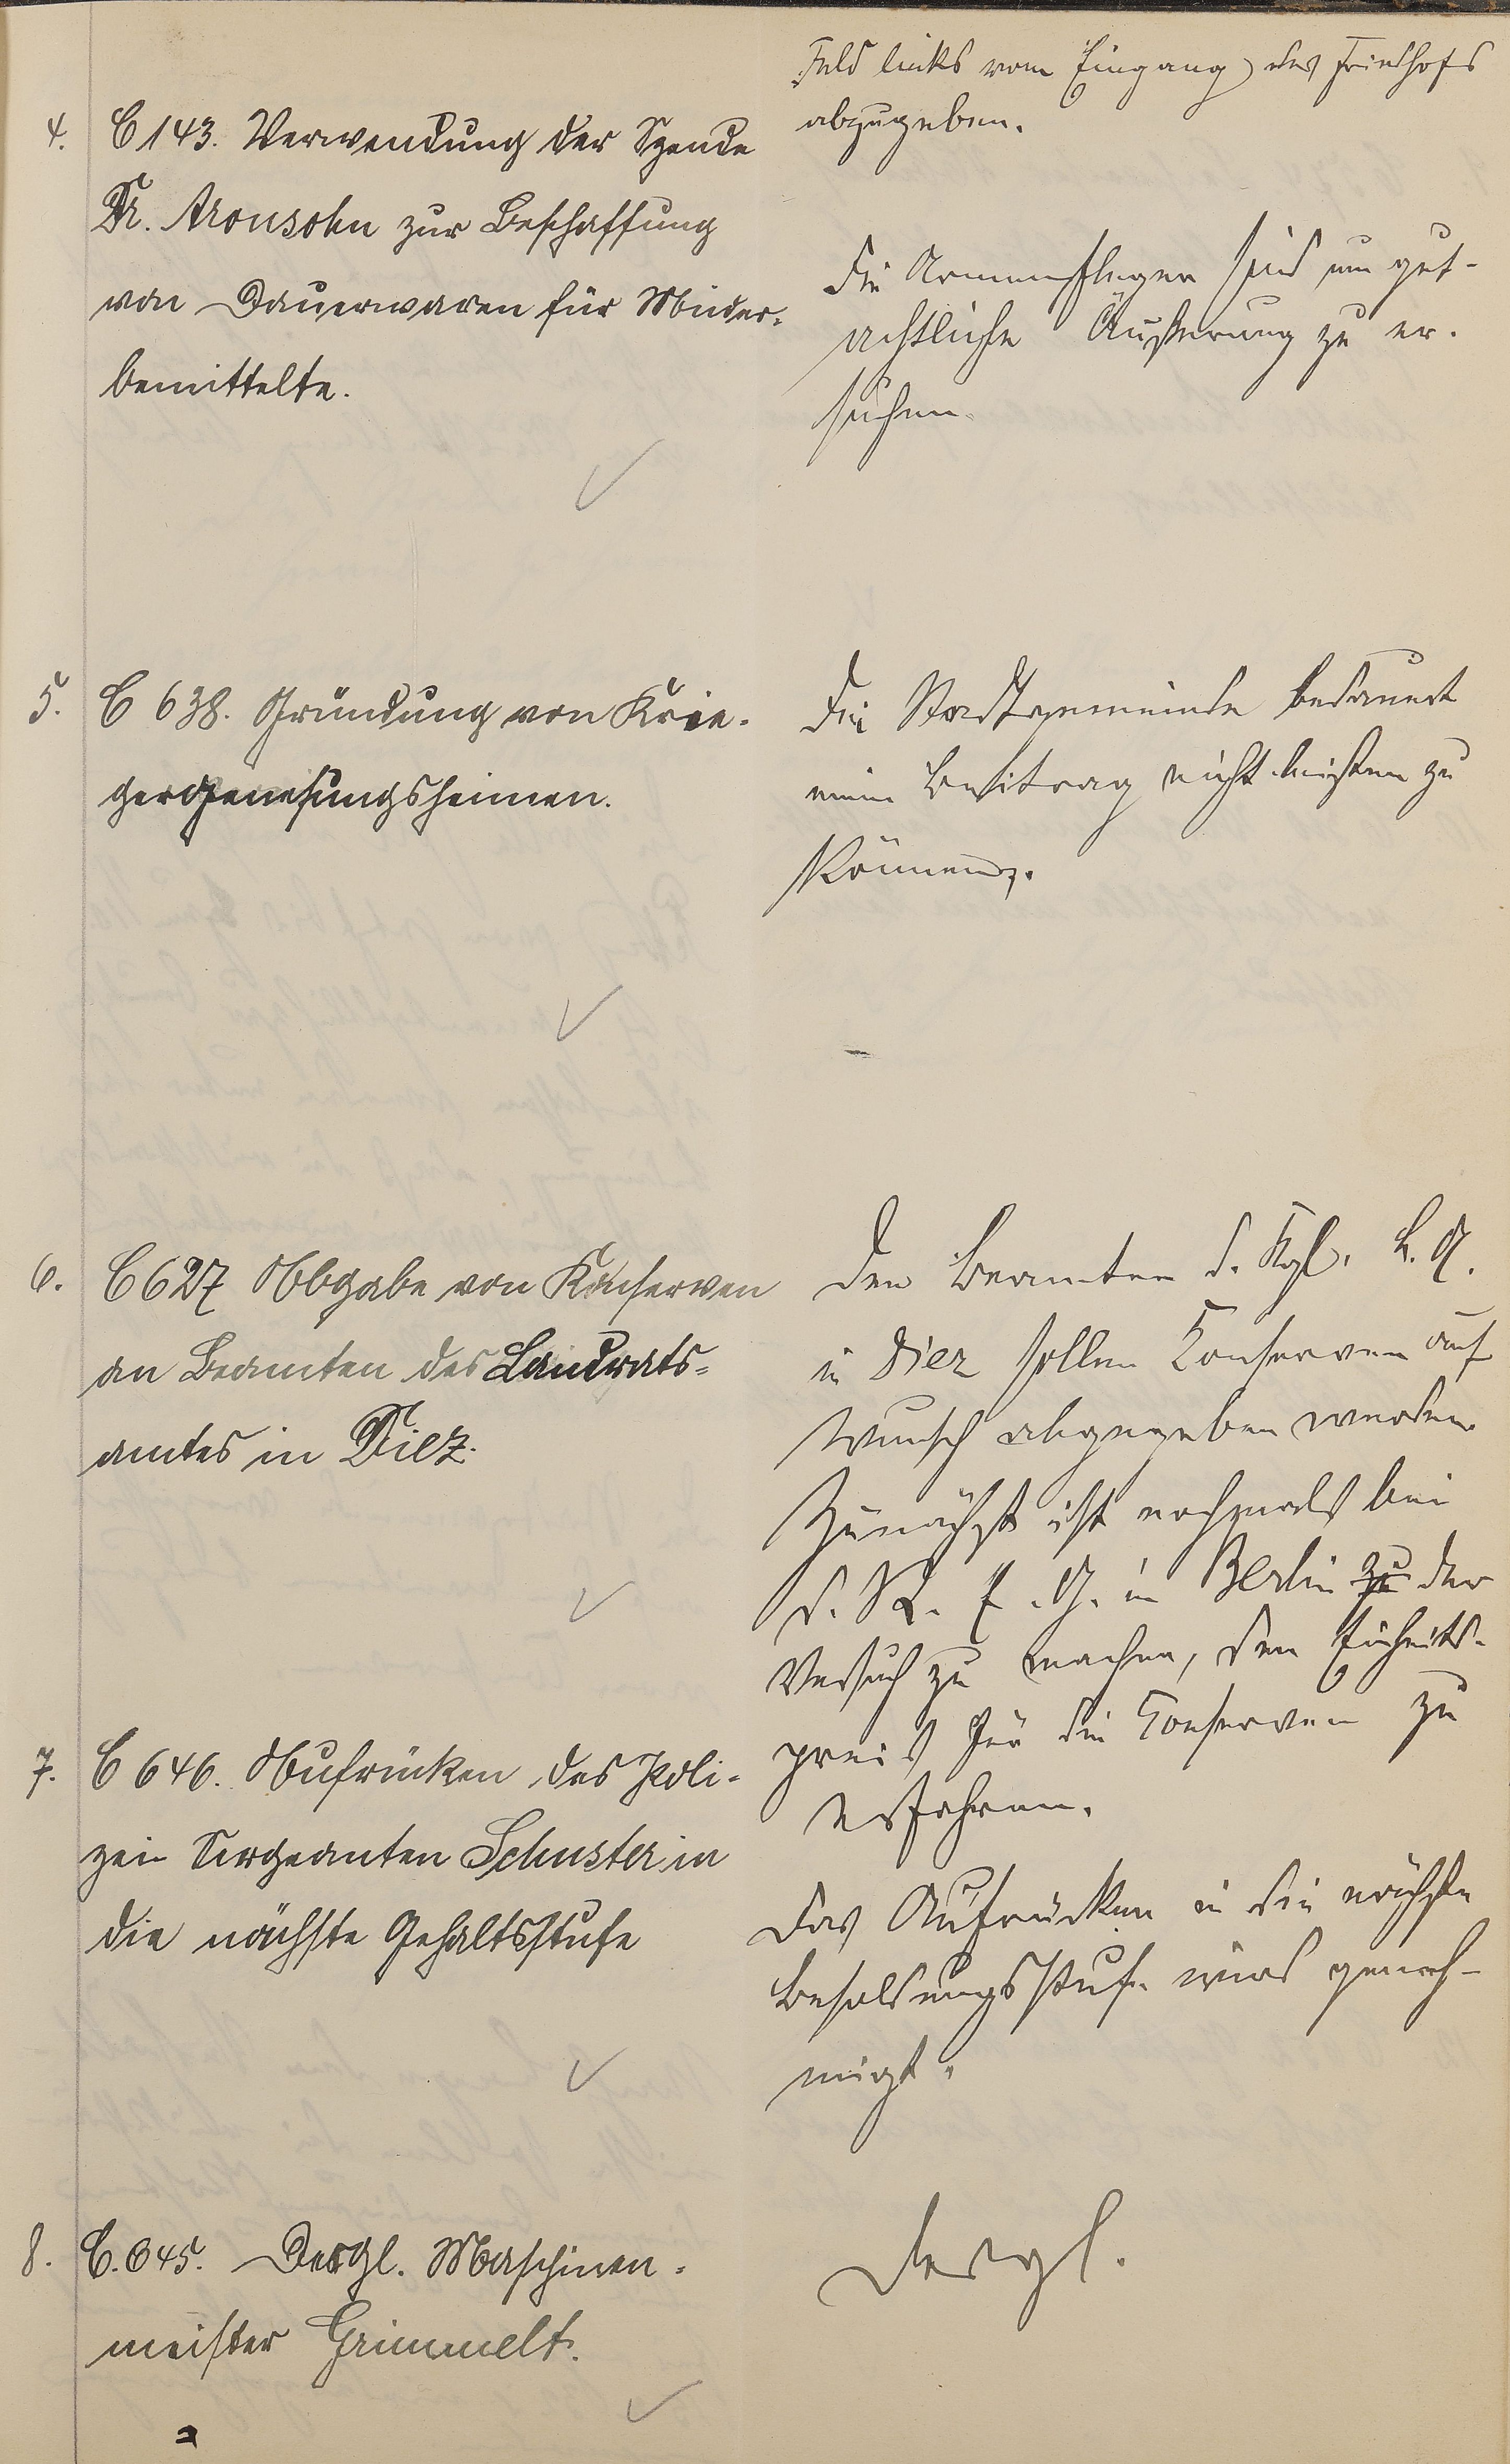 Feld links vom Eingang) des Friedhofs
abzugeben.
4. C 143. Verwendung der Spende
Dr. Aronsohn zur Beschaffung
von Dauerwaren für Minder-
bemittelte.
Die Armenpfleger sind um gut-
achtliche Äußerung zu er-
suchen.
5. C 638. Gründung von Krie-
gergenesungsheimen.
Die Stadtgemeinde bedauert
einen Beitrag nicht leisten zu
können.
6. C 627 Abgabe von Konserven
an Beamten des Landrats-
amtes in Diez.
Den Beamten d. Kgl. L. A.
in Diez sollen Konserven auf
Wunsch abgegeben werden.
Zunächst ist nochmals bei
d. Z. E. G. in Berlin zu der
Versuch zu machen, den Einheits-
preis für die Konserven zu
erfahren.
7. C 646. Aufrücken des Poli-
zei Sergeanten Schuster in
die nächste Gehaltsstufe
Das Aufrücken in die nächste
Besoldungsstufe wird geneh-
migt.
8. C. 645. Dergl. Maschinen-
meister Grimmelt.
Dergl.